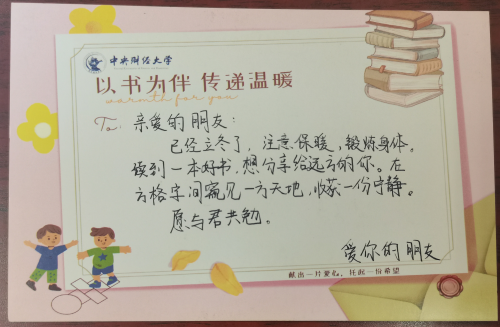 中央财经大学
以书为伴 传递温暖
warmth for you
To: 亲爱的朋友：
已经立冬了，注意保暖，锻炼身体。
读到一本好书，想分享给远方的你。在
方格字间窥见一方天地，收获一份宁静。
愿与君共勉。
爱你的朋友
献出一片爱心，托起一份希望